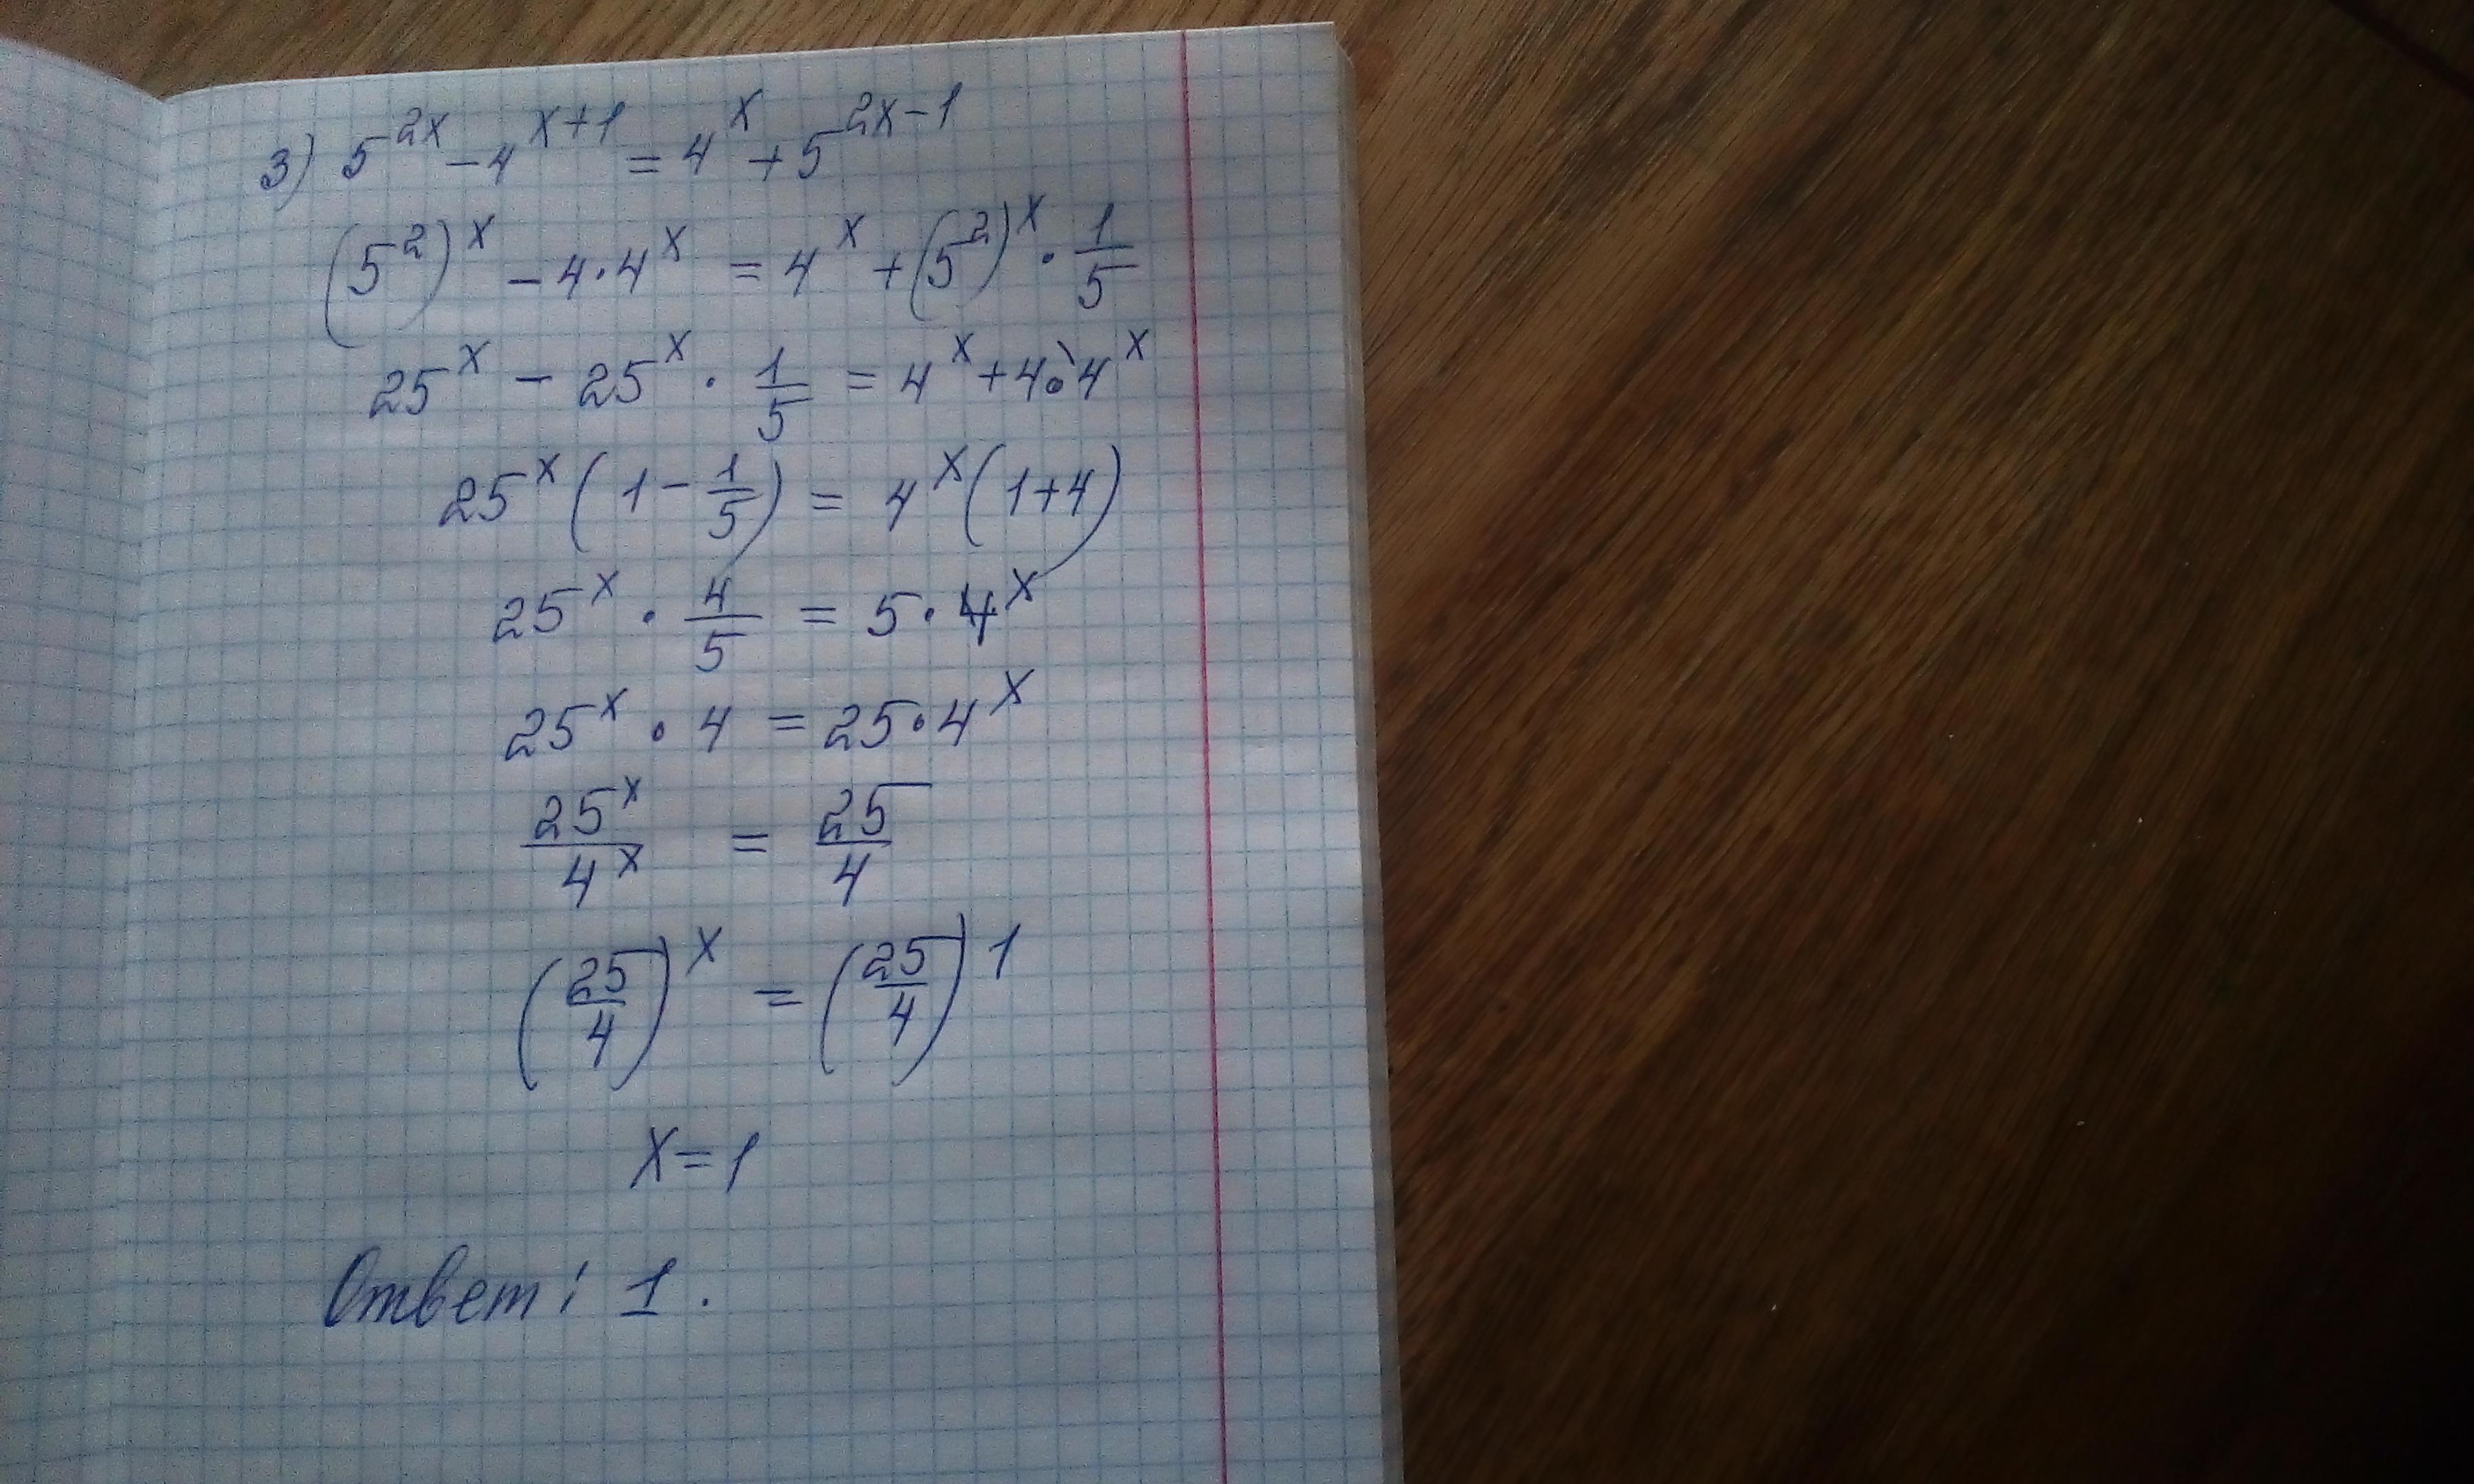 3) 5^{2x} - 4^{x+1} = 4^x + 5^{2x-1}
(5^2)^x - 4·4^x = 4^x + (5^2)^x · 1/5
25^x - 25^x · 1/5 = 4^x + 4·4^x
25^x (1 - 1/5) = 4^x (1+4)
25^x · 4/5 = 5·4^x
25^x · 4 = 25·4^x
25^x/4^x = 25/4
(25/4)^x = (25/4)^1
x = 1
Ответ: 1.